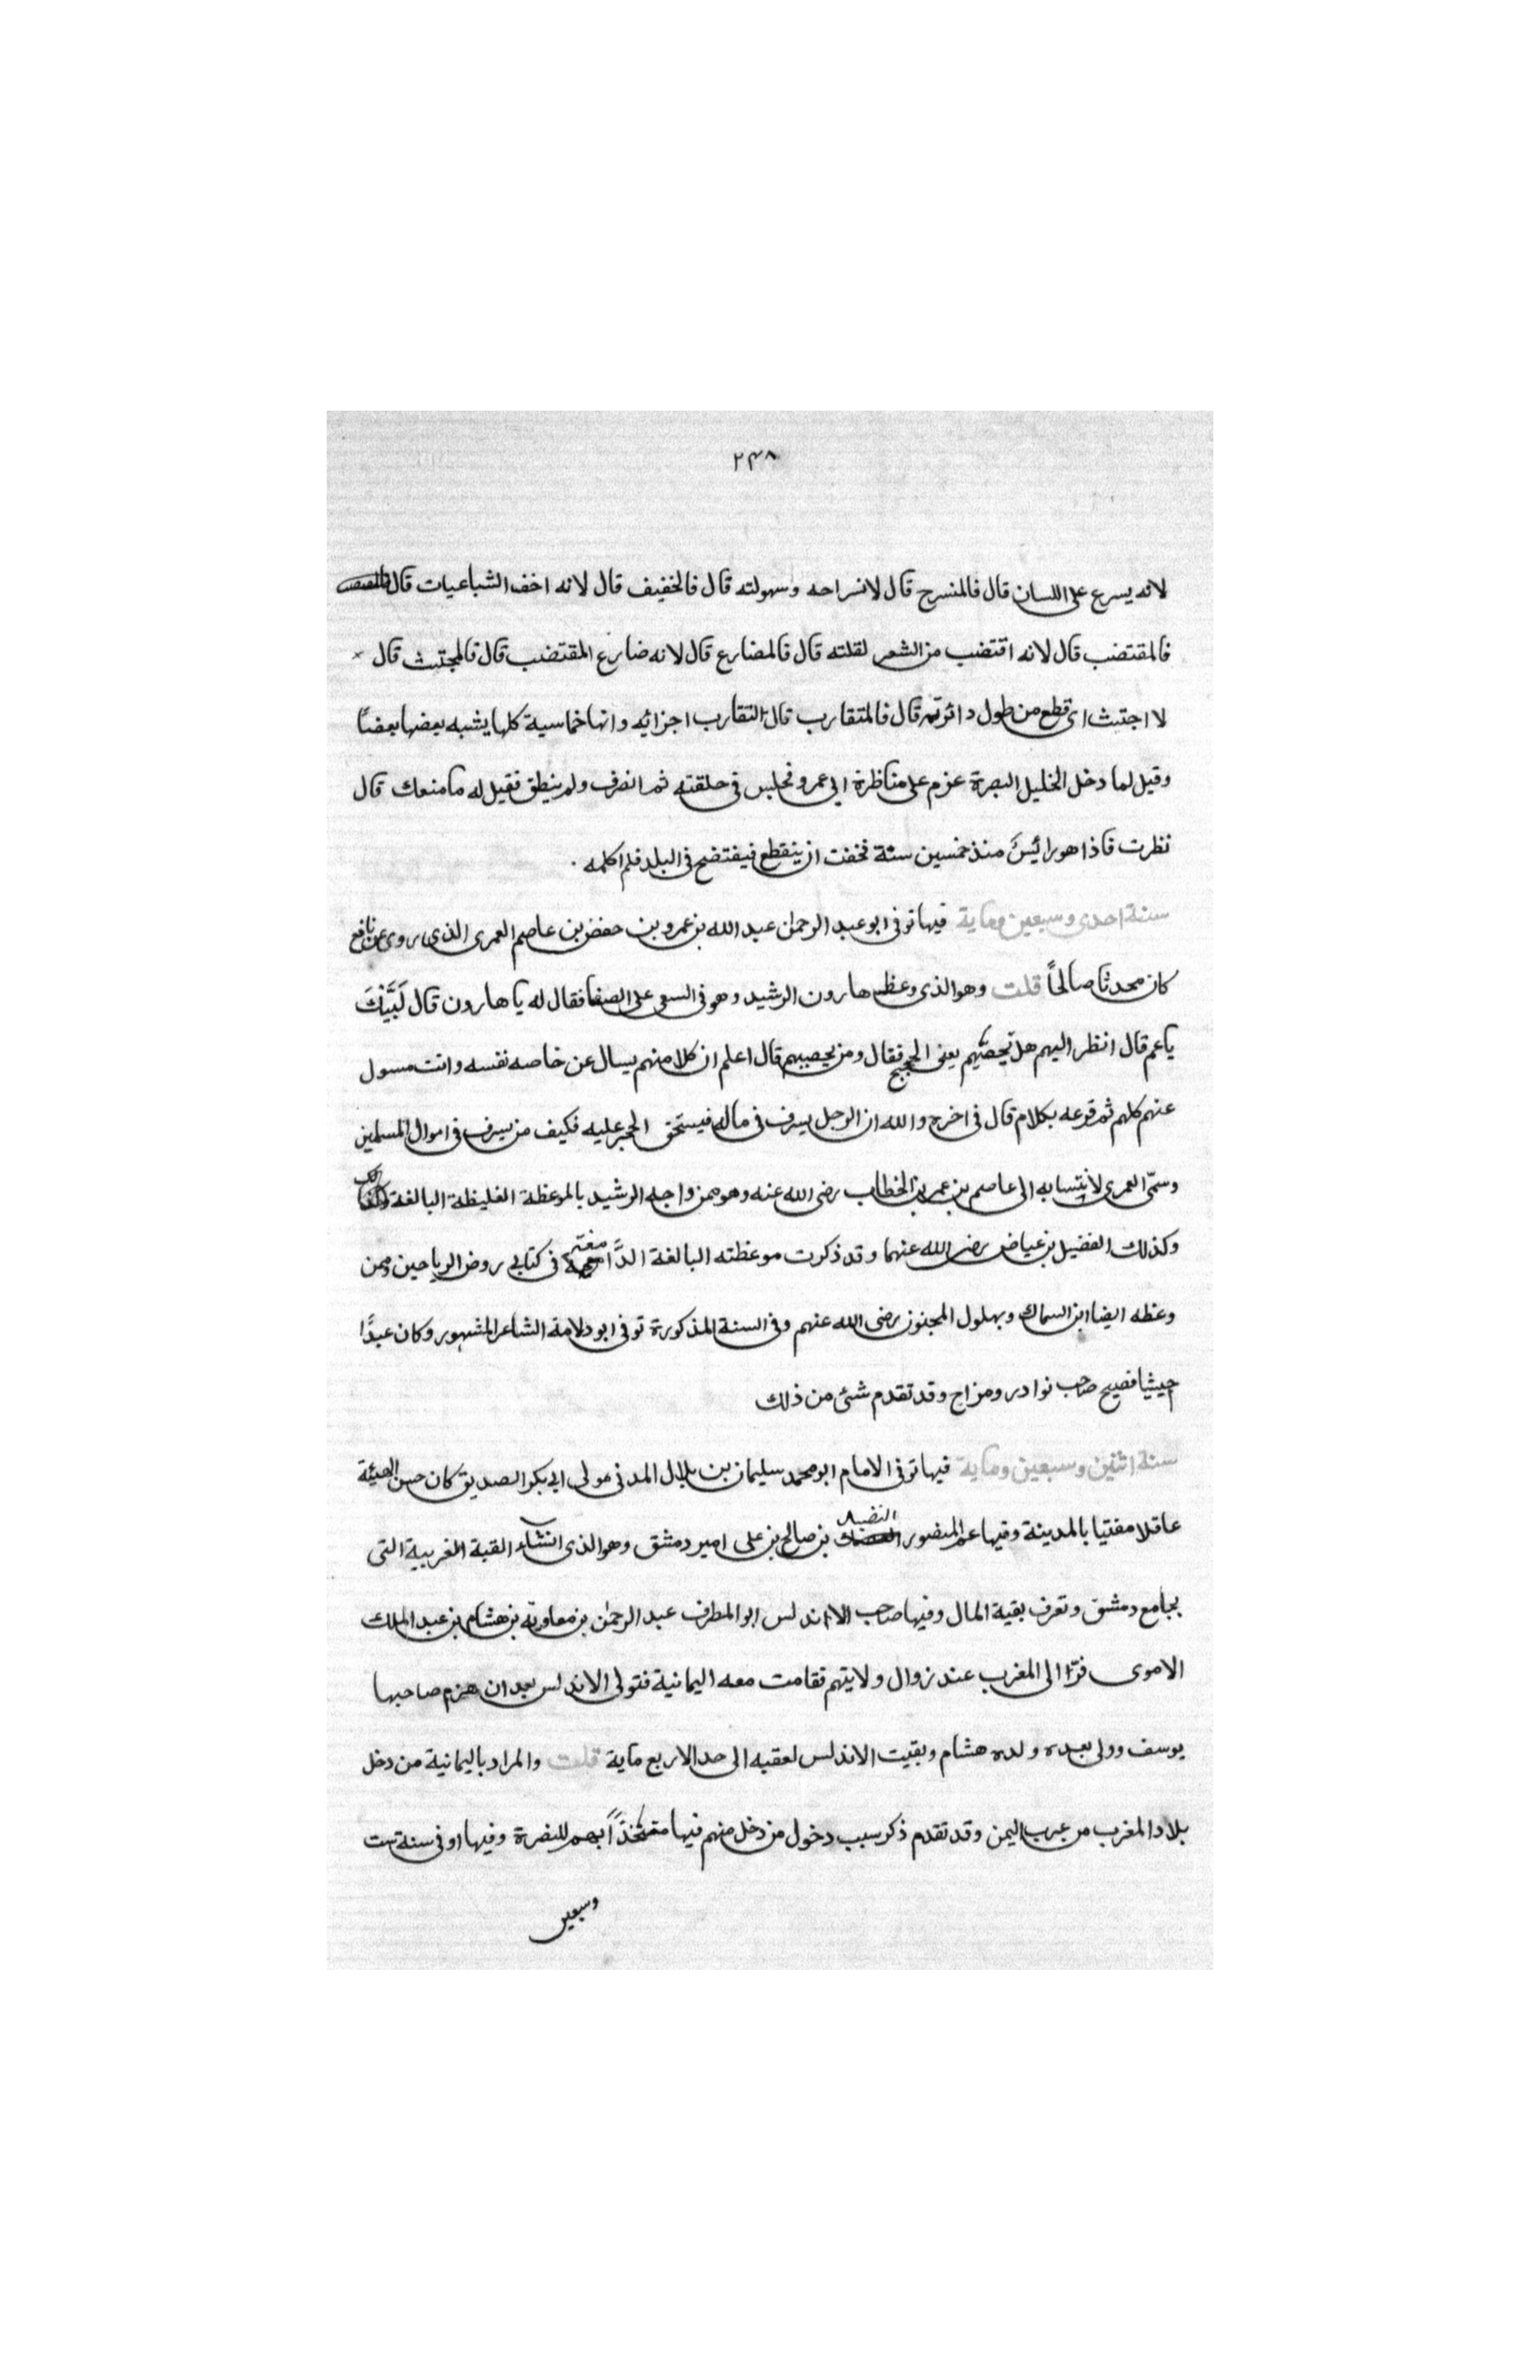 ٢٣٨
لانه يسرع على اللسان قال فالمنسرح قال لانسراحه وسهولته قال فالخفيف قال لانه اخف الشباعيات قال
فالمقتضب قال لانه اقتضب من الشعر لقلته قال فالمضارع قال لانه ضارع المقتضب قال فالمجتث قال
لا اجتث اى قطع من طول دائرته قال فالمتقارب قال لتقارب اجزائه وانها خماسية كلها يشبه بعضها بعضًا
وقيل لما دخل الخليل البصرة عزم على مناظرة ابى عمرو فجلس فى حلقته ثم انصرف ولم ينطق فقيل له ما منعك قال
نظرت فاذا هو رائيسَ منذ خمسين سنة فخفت ان ينقطع فيفتضح فى البلد فلم اكلمه
سنة احدى وسبعين وماية فيها توفى ابو عبد الرحمان عبد الله بن عمرو بن حفص بن عاصم العمرى الذى روى عن نافع
كان محدثا صالحًا قلت وهو الذى وعظ هارون الرشيد وهو فى السعى على الصفا فقال له يا هارون قال لَبَّيْكَ
يا عم قال انظر اليهم هل تحصيهم يعنى الحجيج فقال ومن يحصيهم قال اعلم ان كلا منهم يسال عن خاصه نفسه وانت مسول
عنهم كلهم ثم قرعه بكلام قال فى اخره والله ان الرجل يسرف فى ماله فيستحق الحجر عليه فكيف من يسرف فى اموال المسلمين
وسمّى العمرى لانتسابه الى عاصم بن عمر بن الخطاب رضى الله عنه وهو ممن واجه الرشيد بالموعظة الغليظة البالغة
وكذلك الفضيل بن عياض رضى الله عنهما وقد ذكرت موعظته البالغة فى كتابى روض الرياحين وممن
وعظه ايضا ابن السماك وبهلول المجنون رضى الله عنهم وفى السنة المذكورة توفى ابو دلامة الشاعر المشهور وكان عبدًا
حبيثيا فصيح صاحب نوادر ومزاح وقد تقدم شئ من ذلك
سنة اثنين وسبعين وماية فيها توفى الامام ابو محمد سليمان بن بلال المدنى مولى ابى بكر الصديق كان حسن الهيئة
عاقلا مفتيا بالمدينة وفيها عم المنصور الفضيل بن صالح بن على امير دمشق وهو الذى انشاء القبة الغربية التى
بجامع دمشق وتعرف بقية المال وفيها صاحب الاندلس ابو المطرف عبد الرحمن بن معاويه بن هشام بن عبد الملك
الاموى فرّا الى المغرب عند زوال ولايتهم فقامت معه اليمانية فتولى الاندلس بعد ان هزم صاحبها
يوسف وولى بعده ولده هشام وبقيت الاندلس لعقبه الى حد الاربع ماية قلت والمراد باليمانية من دخل
بلاد المغرب من عرب اليمن وقد تقدم ذكر سبب دخول من دخل منهم فيها متخذًا بهم للنصرة وفيها او فى سنة ست
وسبعين